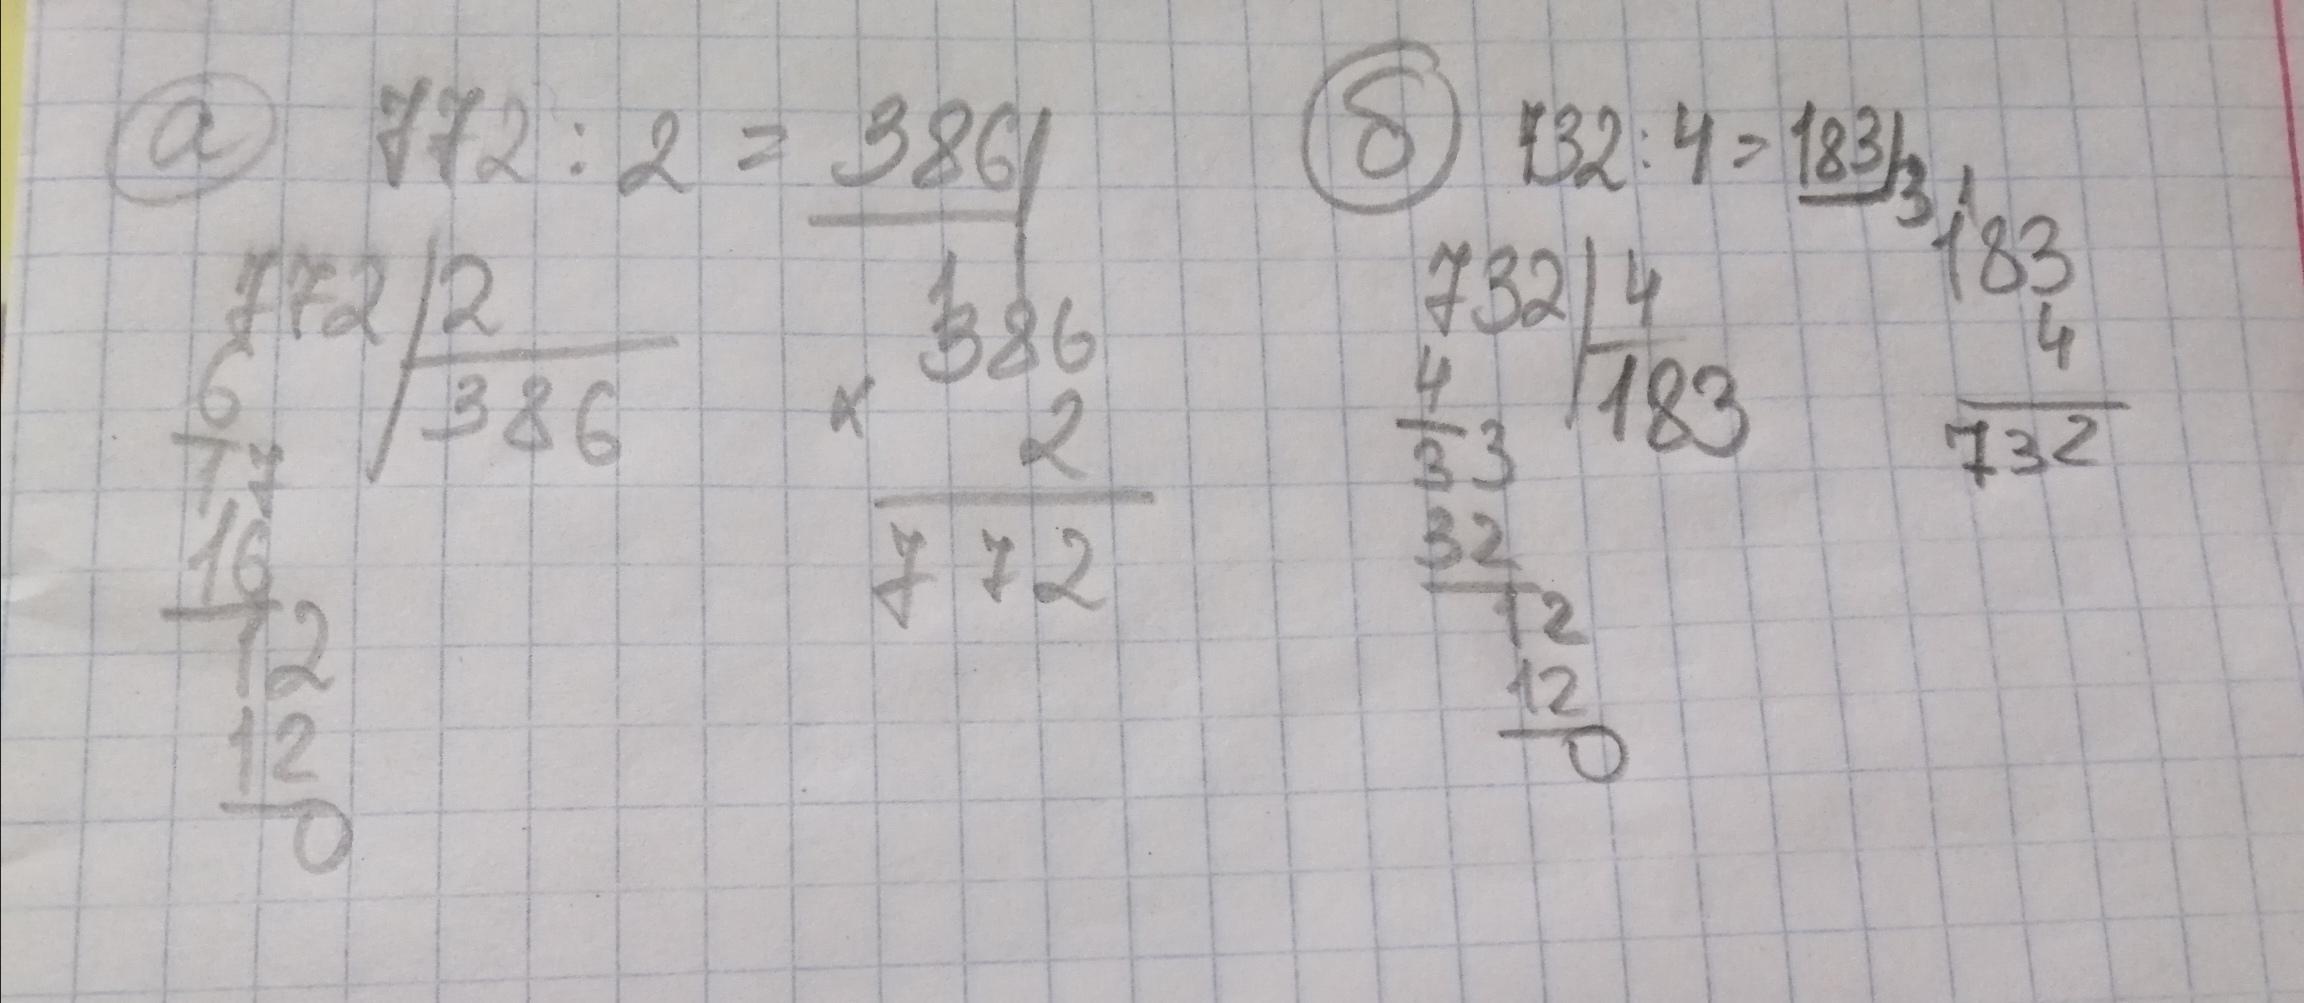 а 772 : 2 = 386
772 2
386
6
17
16
12
12
0
1 1
386
× 2
772
б 732 : 4 = 183
732 4
183
4
33
32
12
12
0
3 1
183
4
732